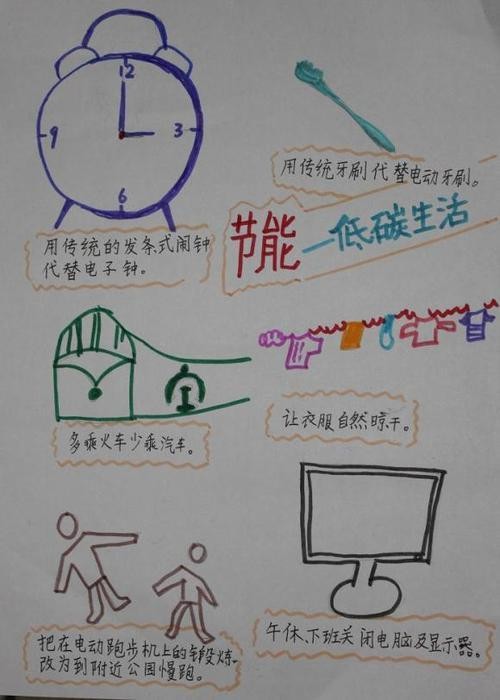 12
9
3
6
用传统的发条式闹钟
代替电子钟。
用传统牙刷代替电动牙刷。
节能—低碳生活
多乘火车少乘汽车。
让衣服自然晾干。
把在电动跑步机上的锻炼
改为到附近公园慢跑。
午休、下班关闭电脑及显示器。